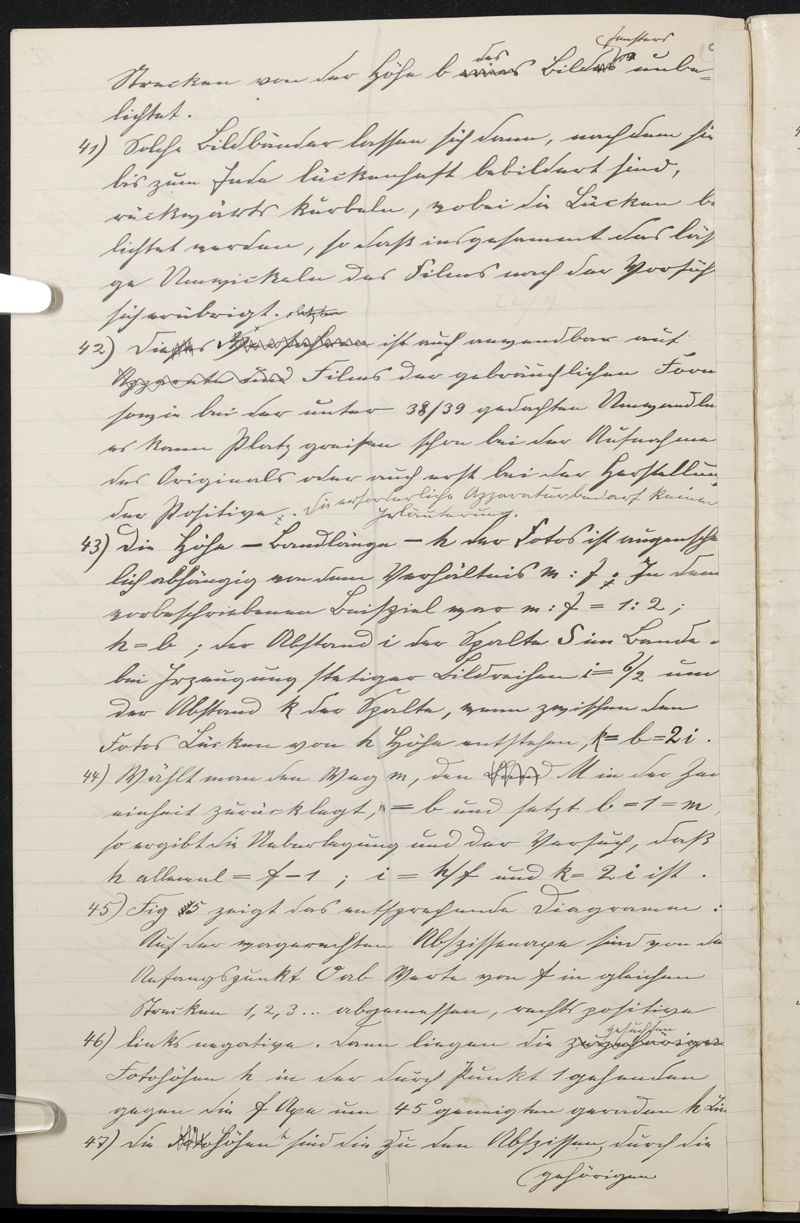 Fensters
Strecken von der Höhe b des Bild unbe-
lichtet.
41) Solche Bildbänder lassen sich dann, nachdem sie
bis zum Ende lückenhaft bebildert sind,
rückwärts kurbeln, wobei die Lücken be
lichtet werden, so daß insgesamt das läs
ge Umwickeln des Films nach der Vorfüh
sich erübrigt.
42) Dies ist auch anwendbar auf
Apparate und Films der gebräuchlichen Form
sowie bei der unter 38/39 gedachten Umwandlu
es kann Platz greifen schon bei der Aufnahme
des Originals oder auch erst bei der Herstellung
der Positive. Die erforderliche Apparatur bedarf keiner
Erläuterung.
43) Die Höhe – Bandlänge – h der Fotos ist augensche
lich abhängig von dem Verhältnis m : f. In dem
vorbeschriebenen Beispiel war m : f = 1 : 2 ;
h = b ; der Abstand i der Spalte S im Bande
bei Erzeugung stetiger Bildreihen i = b/2 und
der Abstand k der Spalte, wenn zwischen den
Fotos Lücken von h Höhe entstehen, k = b = 2i.
44) Wählt man den Weg m, den M in der Zei
einheit zurücklegt, = b und setzt b = 1 = m,
so ergibt die Ueberlegung und der Versuch, daß
h allemal = f – 1 ; i = h/f und k = 2i ist.
45) Fig 5 zeigt das entsprechende Diagramm :
Auf der wagerechten Abszissenaxe sind von dem
Anfangspunkt O ab Werte von f in gleichen
Strecken 1, 2, 3 ... abgemessen, rechts positive
46) links negative. Dann liegen die zugehörigen
gesuchten
Fotohöhen h in der durch Punkt 1 gehenden
gegen die f Axe um 45° geneigten geraden h Lin
47) Die Höhen h sind die zu den Abszissen durch die
gehörigen